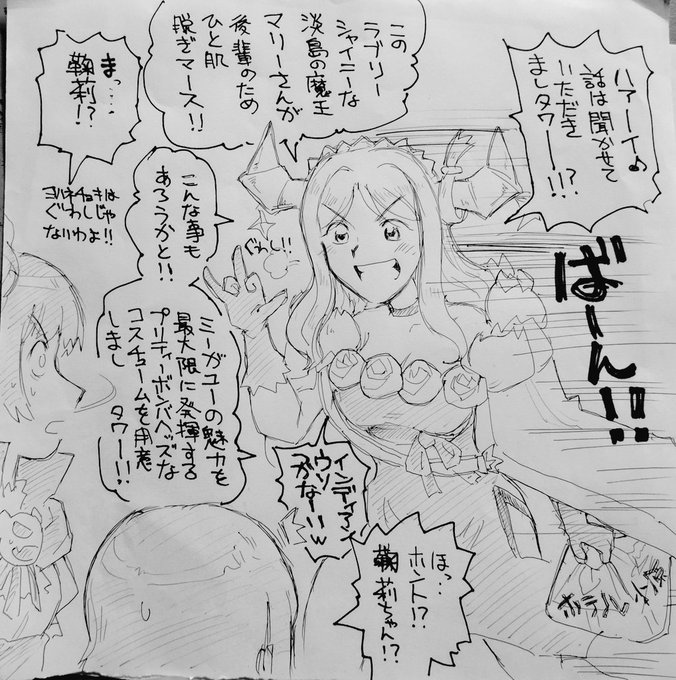 ハァーイ♪
話は聞かせて
いただき
ましタワー!!?
ばーん!!
この
ラブリー
シャイニーな
淡島の魔王
マリーさんが
後輩のため
ひと肌
脱ぎマース!!
まっ…
鞠莉!?
ぐわし!!
こんな事も
あろうかと!!
ミーがユーの魅力を
最大限に発揮する
プリティーボンバヘッズな
コスチュームを用意
しまし
タワー!!!
インディアン
ウソ
つかなーいw
ほっ…
ホント!?
鞠莉ちゃん!?
ホテル